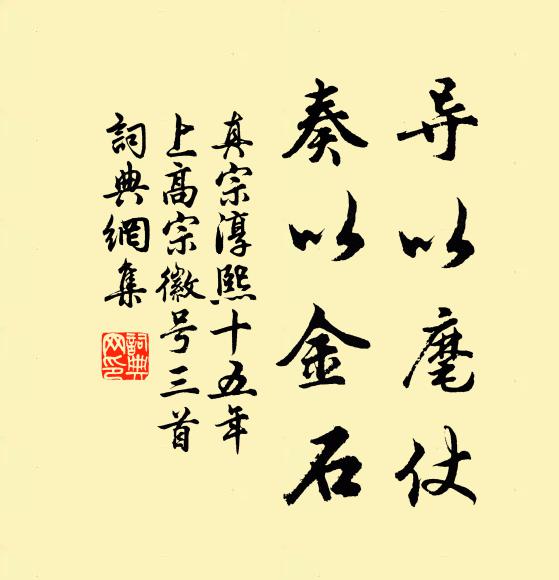 导以麾仗
奏以金石
真宗淳熙十五年
上高宗徽号三首
詞典網集
詞典网印